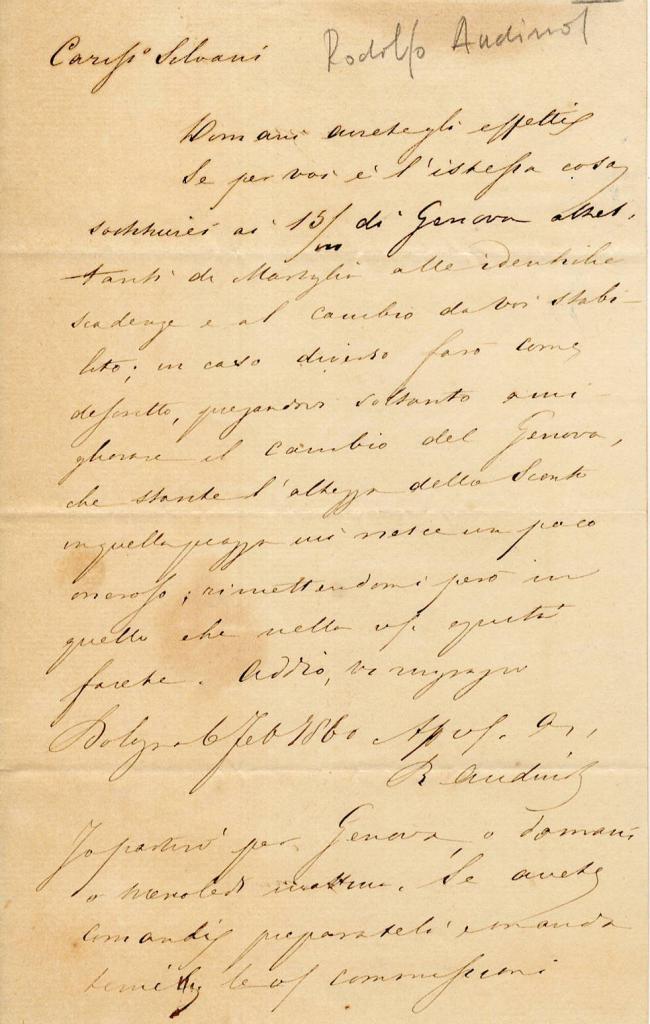 Rodolfo Audinot
Cariss.o Silvani
Domani avrete gli effetti
Se per voi è l'istessa cosa
sostituirei ai 15/m di Genova altret-
tanti di Marsiglia alle identiche
scadenze e al cambio da voi stabi-
lito; in caso diverso farò come
desiderato, pregandovi soltanto a mi-
gliorare il cambio del Genova,
che stante l'altezza dello Sconto
in quella piazza mi riesce un poco
oneroso; rimettendomi però in
quello che nella vs. equità
farete. Addio, vi ringrazio
Bologna 6 Feb 1860
R Audinot
Io partirò per Genova, o domani
o mercoledì mattina. Se avete
comandi preparateli e manda
temi le vs commissioni